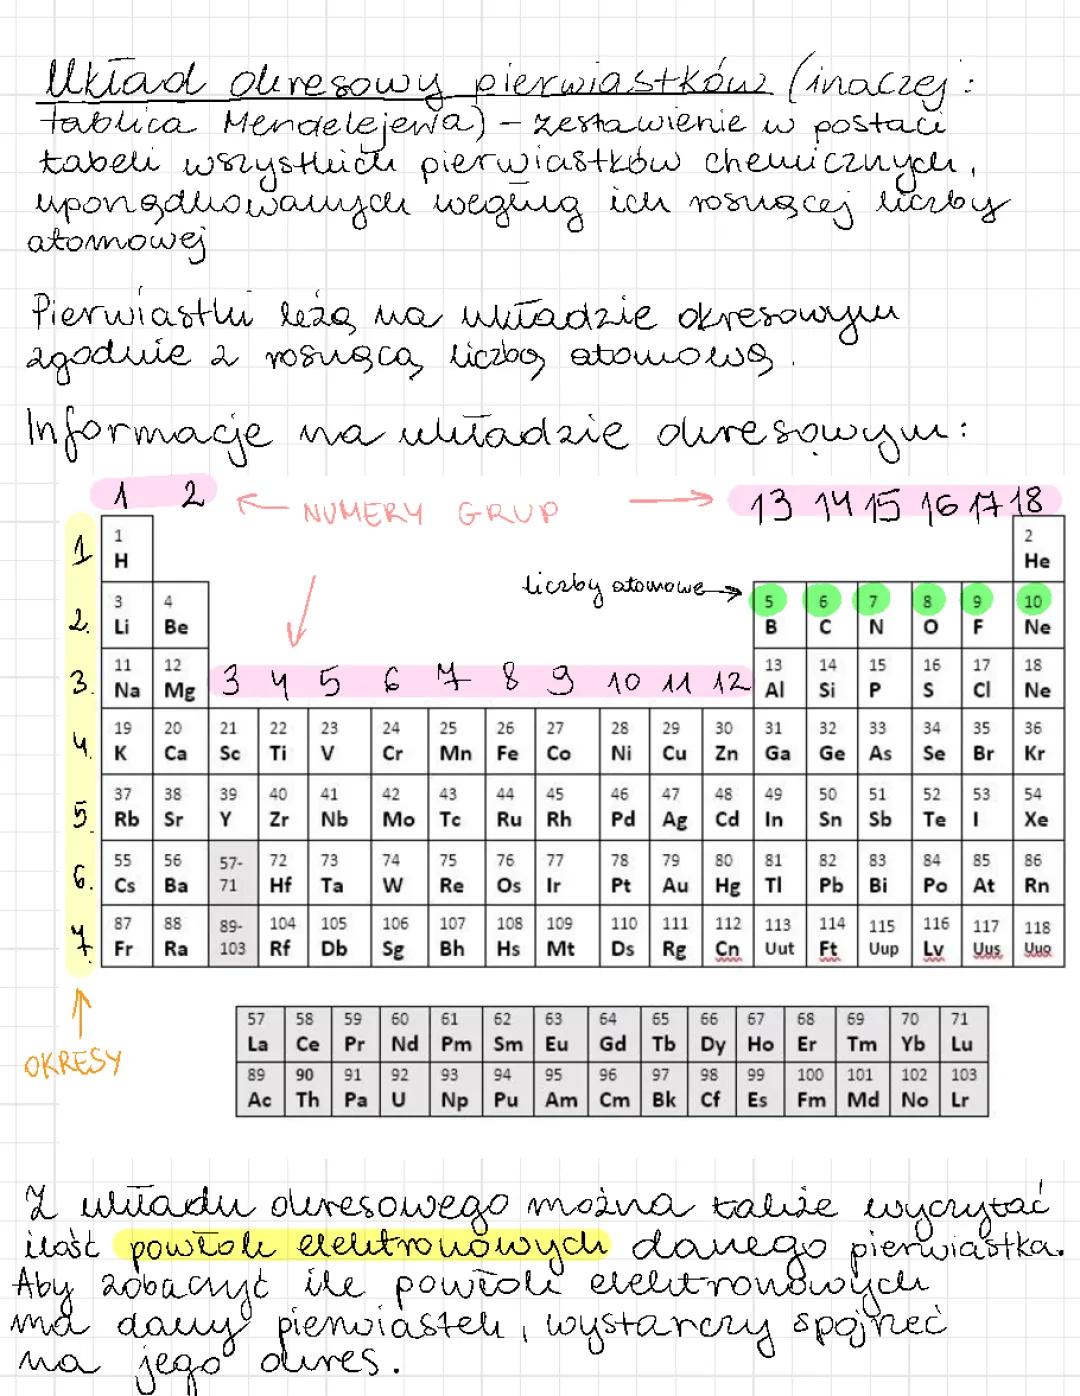 Układ okresowy pierwiastków (inaczej:
tablica Mendelejewa) – zestawienie w postaci
tabeli wszystkich pierwiastków chemicznych,
uporządkowanych według ich rosnącej liczby
atomowej
Pierwiastki leżą na układzie okresowym
zgodnie z rosnącą liczbą atomową.
Informacje na układzie okresowym:
1 2 ← NUMERY GRUP → 13 14 15 16 17 18
1 1 2
H He
liczby atomowe → 5 6 7 8 9 10
2. 3 4
Li Be B C N O F Ne
11 12 13 14 15 16 17 18
3. Na Mg 3 4 5 6 7 8 9 10 11 12 Al Si P S Cl Ne
19 20 21 22 23 24 25 26 27 28 29 30 31 32 33 34 35 36
4. K Ca Sc Ti V Cr Mn Fe Co Ni Cu Zn Ga Ge As Se Br Kr
37 38 39 40 41 42 43 44 45 46 47 48 49 50 51 52 53 54
5. Rb Sr Y Zr Nb Mo Tc Ru Rh Pd Ag Cd In Sn Sb Te I Xe
55 56 57- 72 73 74 75 76 77 78 79 80 81 82 83 84 85 86
6. Cs Ba 71 Hf Ta W Re Os Ir Pt Au Hg Tl Pb Bi Po At Rn
87 88 89- 104 105 106 107 108 109 110 111 112 113 114 115 116 117 118
7. Fr Ra 103 Rf Db Sg Bh Hs Mt Ds Rg Cn Uut Ft Uup Lv Uus Uuo
↑
OKRESY
57 58 59 60 61 62 63 64 65 66 67 68 69 70 71
La Ce Pr Nd Pm Sm Eu Gd Tb Dy Ho Er Tm Yb Lu
89 90 91 92 93 94 95 96 97 98 99 100 101 102 103
Ac Th Pa U Np Pu Am Cm Bk Cf Es Fm Md No Lr
Z układu okresowego można także wyczytać
ilość powłok elektronowych danego pierwiastka.
Aby zobaczyć ile powłok elektronowych
ma dany pierwiastek, wystarczy spojrzeć
na jego okres.